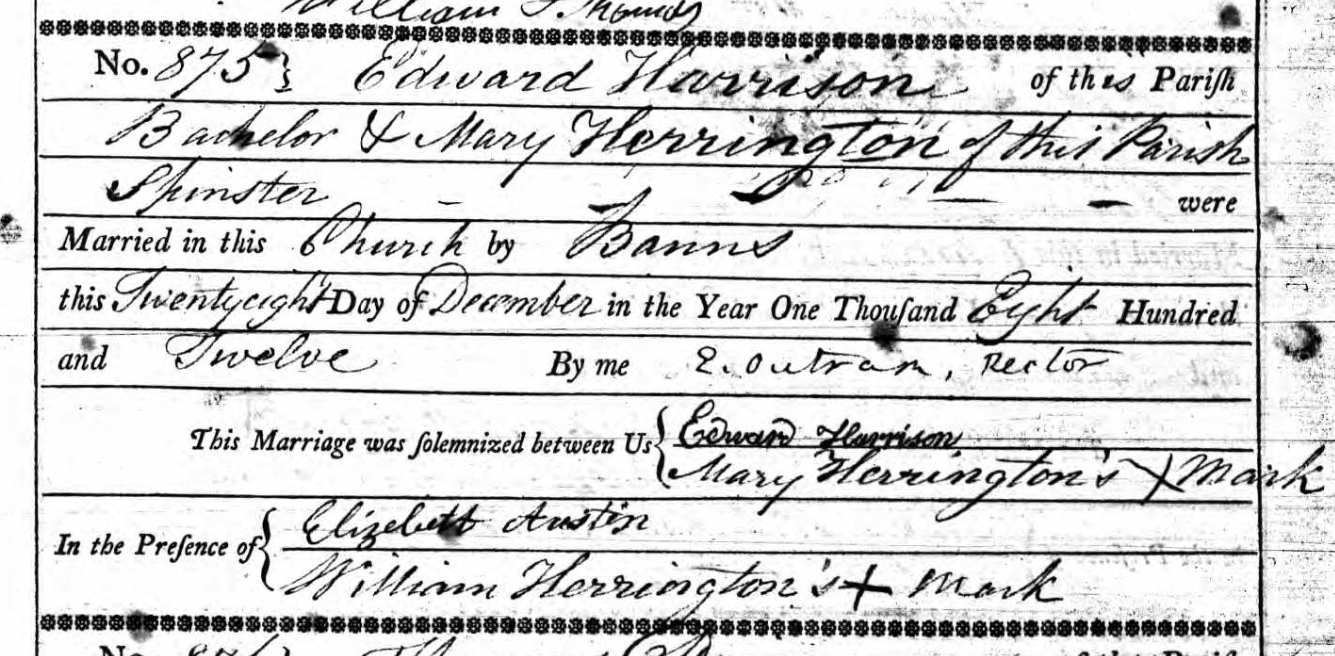 William S. Thomas
No. 875} Edward Harrison of this Pariſh
Bachelor & Mary Herrington of this Parish
Spinster — — — — — were
Married in this Church by Banns
this Twentyeight Day of December in the Year One Thouſand Eight Hundred
and Twelve By me E. Outram, Rector
This Marriage was ſolemnized between Us { Edward Harrison
Mary Herrington's X Mark
In the Preſence of { Elizebett Austin
William Herrington's + Mark
No.